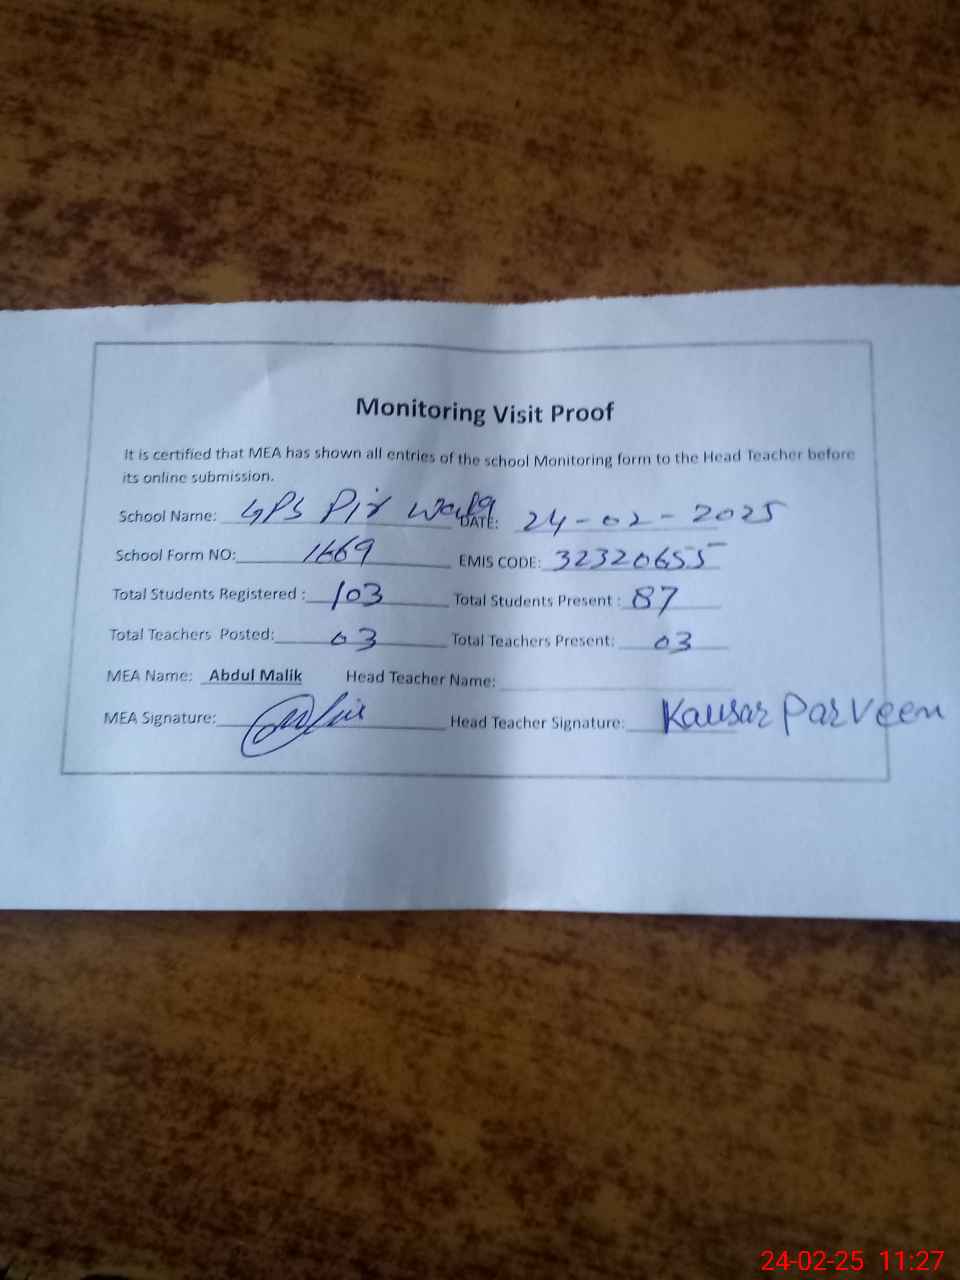 Monitoring Visit Proof
It is certified that MEA has shown all entries of the school Monitoring form to the Head Teacher before
its online submission.
School Name: GPS Pir Wala DATE: 24-02-2025
School Form NO: 1669 EMIS CODE: 32320655
Total Students Registered : 103 Total Students Present : 87
Total Teachers Posted: 03 Total Teachers Present: 03
MEA Name: Abdul Malik Head Teacher Name:
MEA Signature: Head Teacher Signature: Kausar Parveen
24-02-25 11:27